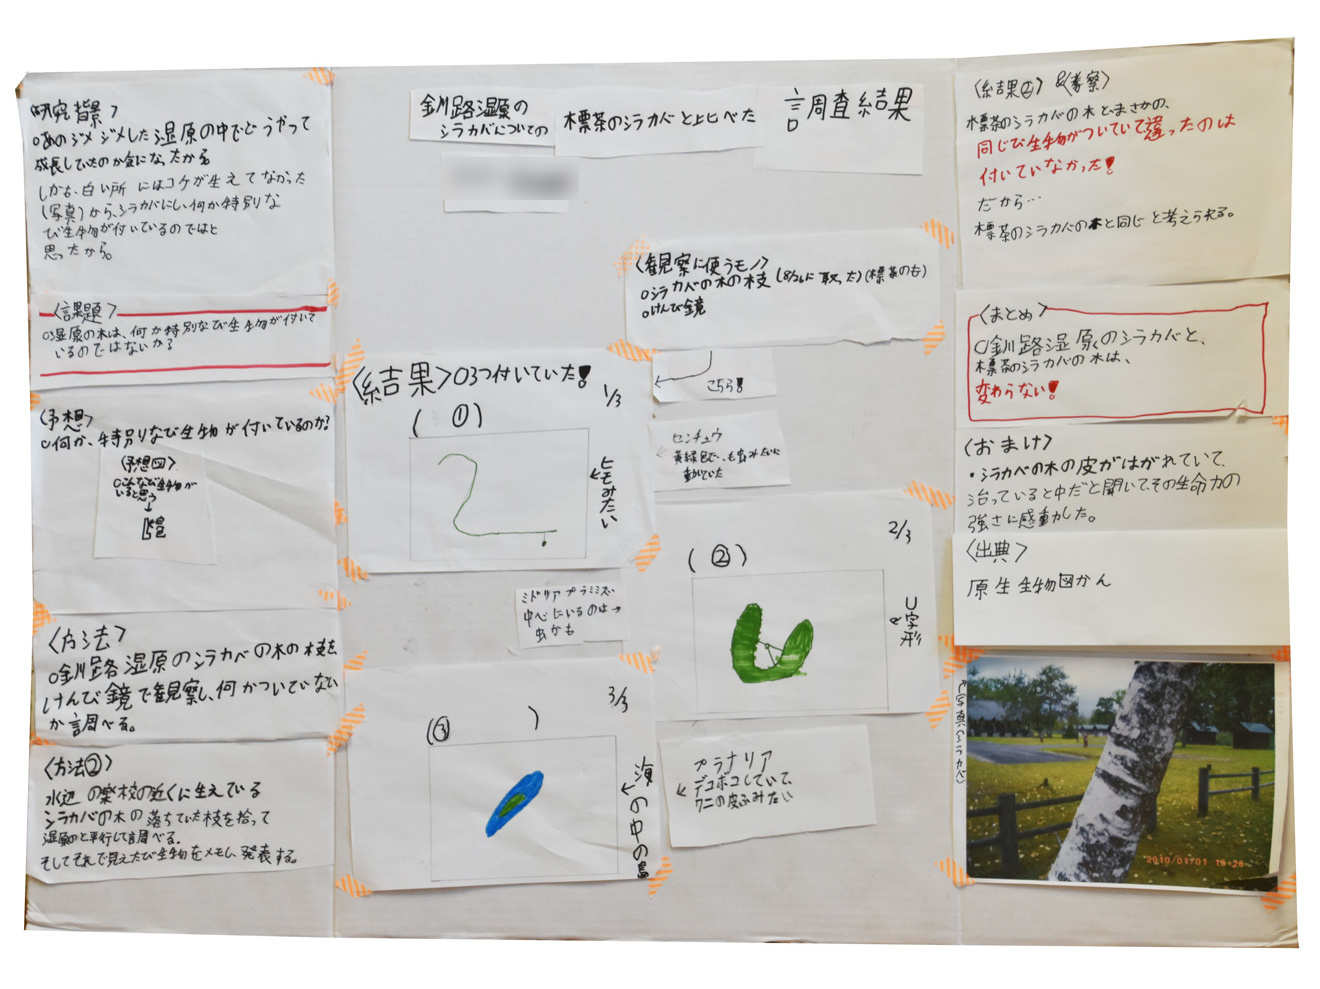 〈研究背景〉
○あのジメジメした湿原の中でどうやって
成長していたのか気になったから
しかも、白い所にはコケが生えてなかった
(写真)から、シラカバにし、何か特別な
び生物が付いているのではと
思ったから。
〈課題〉
○湿原の木は、何か特別なび生物が付いて
いるのではないか?
〈予想〉
○何か、特別なび生物が付いているのか?
〈予想図〉
○こんなび生物が
いると思う
↓
〈方法〉
○釧路湿原のシラカベの木の枝を
けんび鏡で観察し、何かついていない
か調べる。
〈方法②〉
水辺の楽校の近くに生えている
シラカバの木の落ちていた枝を拾って
湿原のと平行して調べる。
そしてそれで見えたび生物をメモし、発表する。
釧路湿原の
シラカバについての
標茶のシラカバと比べた
調査結果
〈観察に使うモノ〉
○シラカベの木の枝(8/26に取った)(標茶のも)
○けんび鏡
〈結果〉○3つ付いていた!
1/3
(①)
←ヒモみたい
←こちら!
センチュウ
←黄緑色で、も虫みたいに
動いていた
2/3
(②)
←U字形
ミドリアプラミミズ
中心にいるのは→
虫かも
3/3
(③)
←海の中の島
プラナリア
←デコボコしていて、
ワニの皮ふみたい
〈結果②〉&〈考察〉
標茶のシラカバの木とまさかの、
同じび生物がついていて違ったのは
付いていなかった!
だから…
標茶のシラカバの木と同じと考えられる。
〈まとめ〉
○釧路湿原のシラカバと、
標茶のシラカバの木は、
変わらない!
〈おまけ〉
・シラカベの木の皮がはがれていて、
治っていると中だと聞いて、その生命力の
強さに感動した。
〈出典〉
原生生物図かん
写真(シラカバ)
2010/01/01 18:26